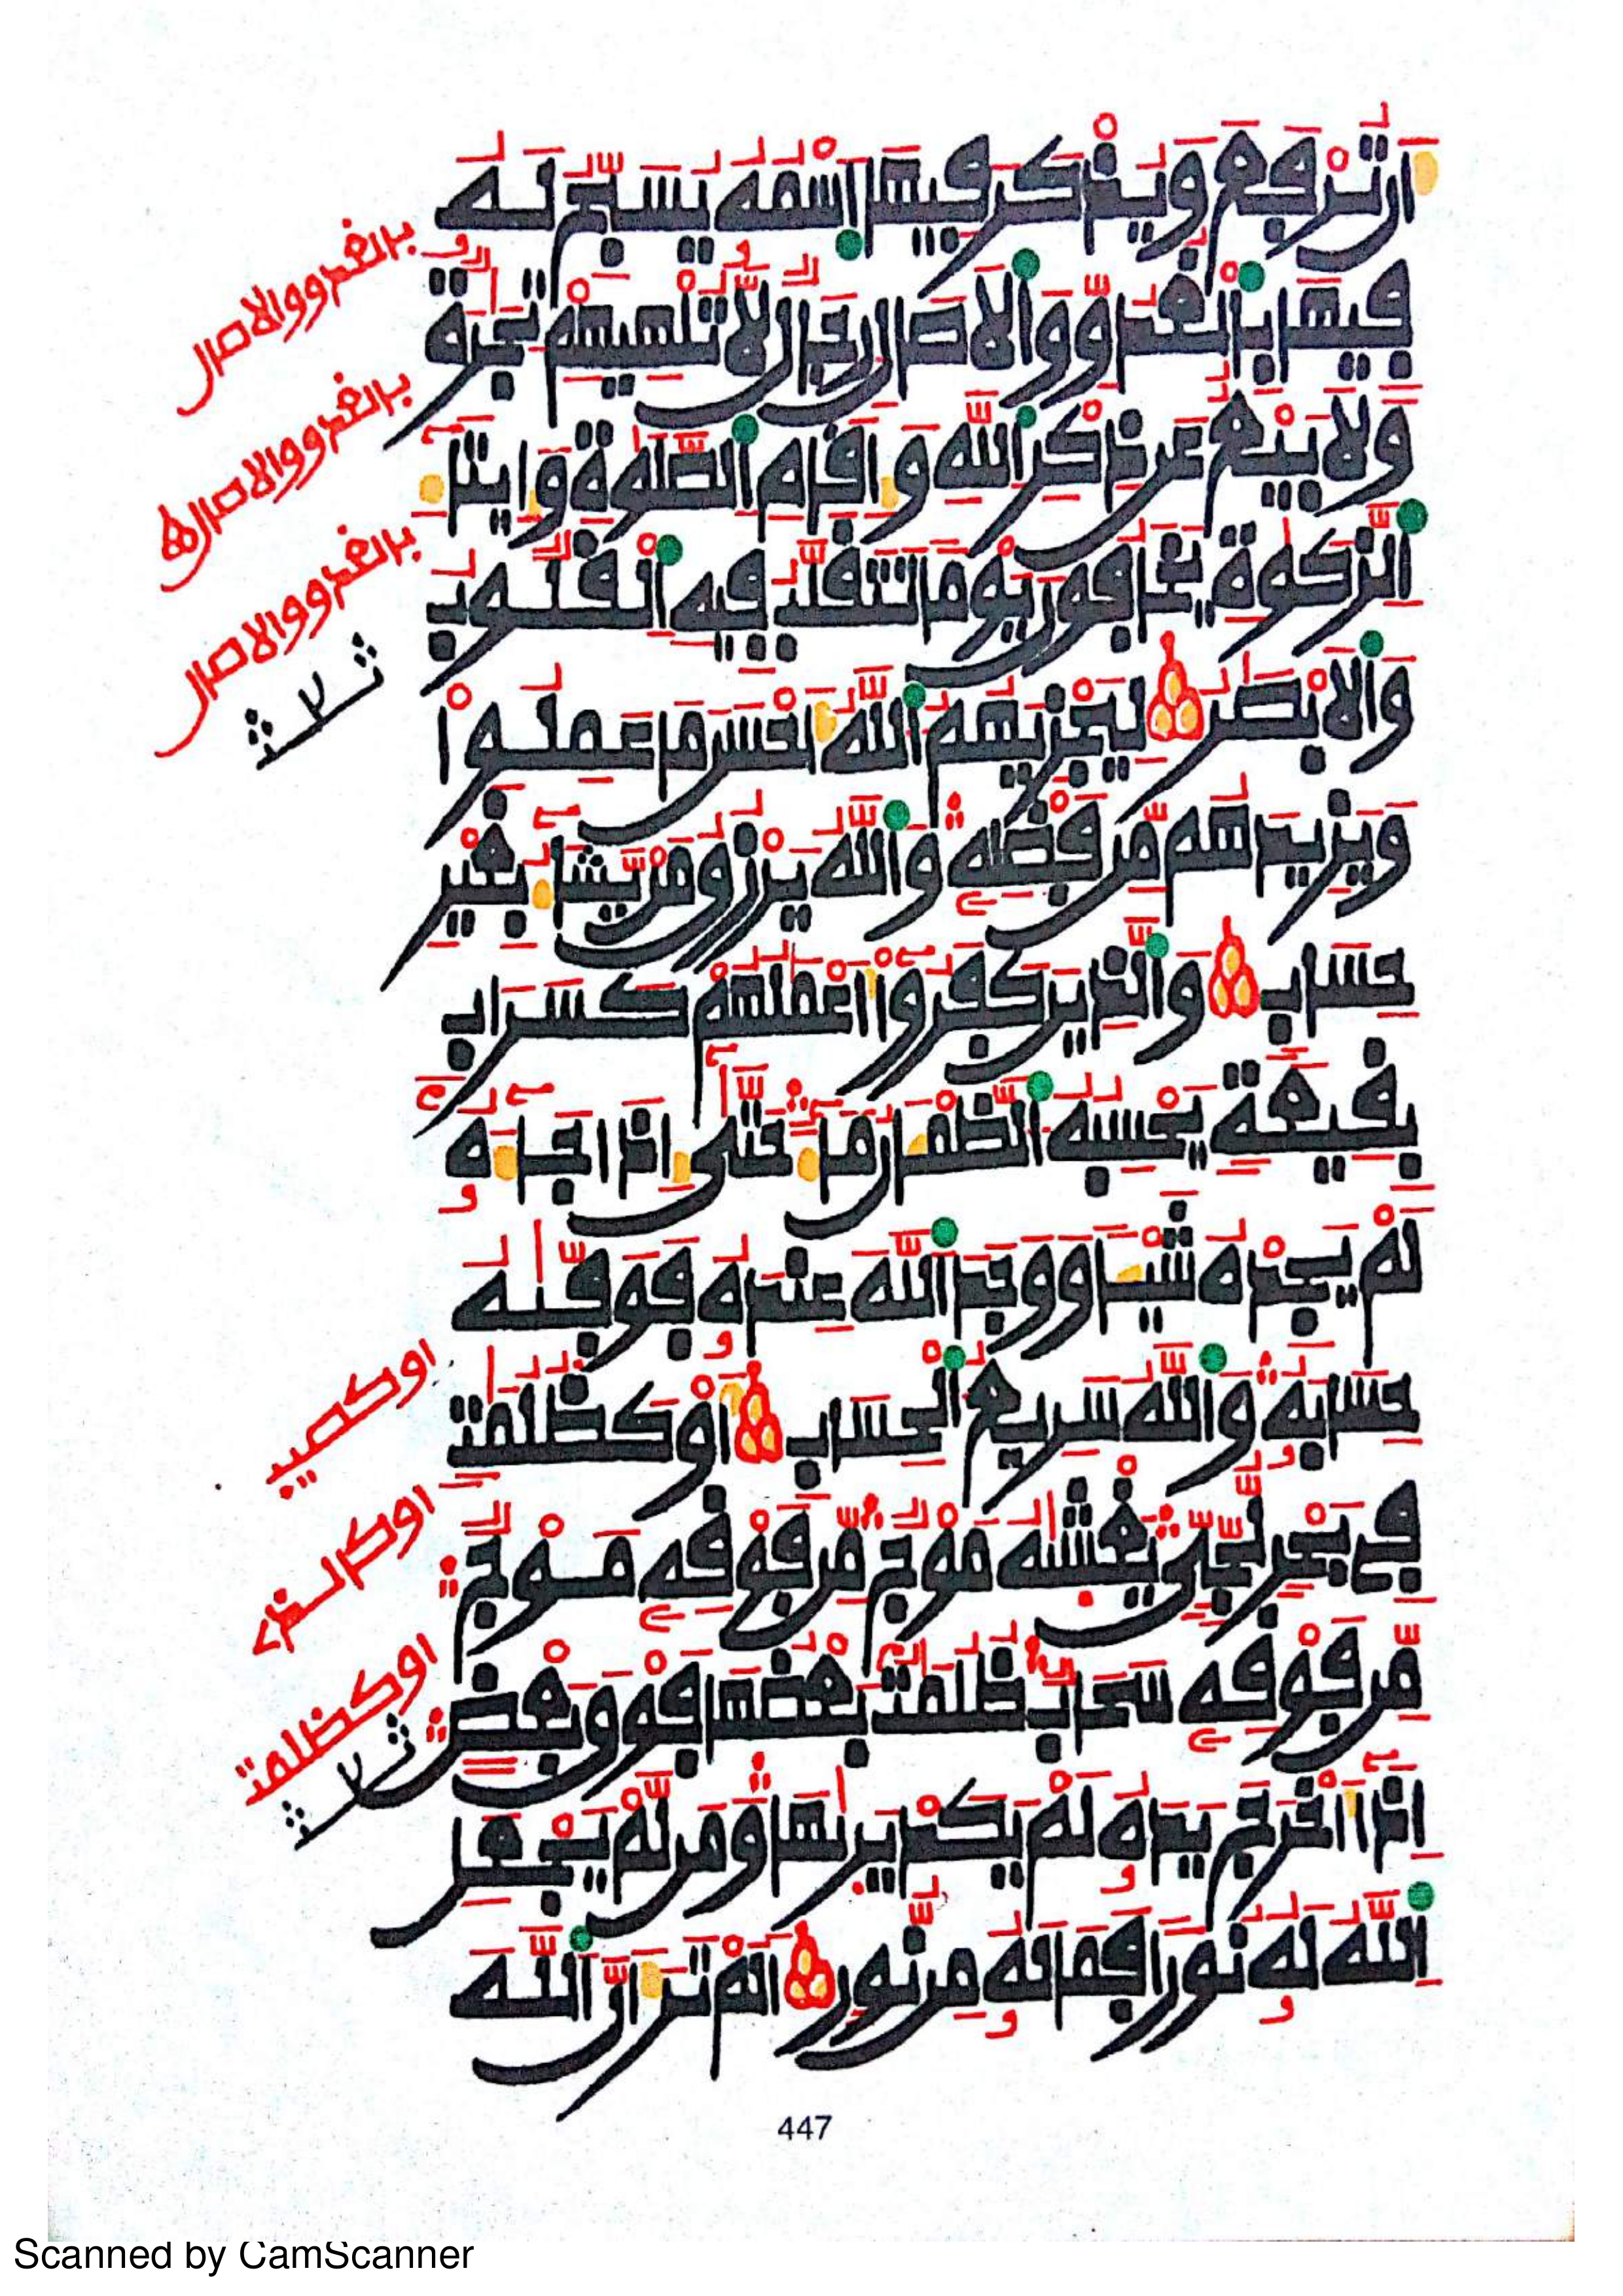 أَن تُرْفَعَ وَيُذْكَرَ فِيهَا اَسْمُهُ يُسَبِّحُ لَهُ
فِيهَا بِالْغُدُوِّ وَالَاصَالِ رِجَالٌ لَّا تُلْهِيهِمْ تِجَرَةٌ
وَلَا بَيْعٌ عَن ذِكْرِ اللَّهِ وَإِقَامِ الصَّلَوةِ وَإِيتَاءِ
الزَّكَوةِ يَخَافُونَ يَوْمًا تَتَقَلَّبُ فِيهِ الْقُلُوبُ
وَالَابْصَرُ لِيَجْزِيَهُمُ اللَّهُ أَحْسَنَ مَا عَمِلُوا
وَيَزِيدَهُم مِّن فَضْلِهِ وَاللَّهُ يَرْزُقُ مَن يَّشَاءُ بِغَيْرِ
حِسَابٍ وَالَّذِينَ كَفَرُوا أَعْمَلُهُمْ كَسَرَابٍ
بِقِيعَةٍ يَحْسِبُهُ الظَّمْـَٔانُ مَاءً حَتَّى إِذَا جَاءَهُ
لَمْ يَجِدْهُ شَيْـًٔا وَوَجَدَ اللَّهَ عِندَهُ فَوَفَّيهُ
حِسَابَهُ وَاللَّهُ سَرِيعُ الْحِسَابِ أَوْ كَظُلُمَتٍ
فِي بَحْرٍ لُّجِّيٍّ يَغْشَيهُ مَوْجٌ مِّن فَوْقِهِ مَوْجٌ
مِّن فَوْقِهِ سَحَابٌ ظُلُمَتٌ بَعْضُهَا فَوْقَ بَعْضٍ
إِذَا أَخْرَجَ يَدَهُ لَمْ يَكَدْ يَرَيهَا وَمَن لَّمْ يَجْعَلِ
اللَّهُ لَهُ نُورًا فَمَا لَهُ مِن نُّورٍ أَلَمْ تَرَ أَنَّ اللَّهَ
بالغدو والاصال
بالغدو والاصال
بالغدو والاصال
اوكصيب
اوكالذي
اوكظلمت
447
Scanned by CamScanner